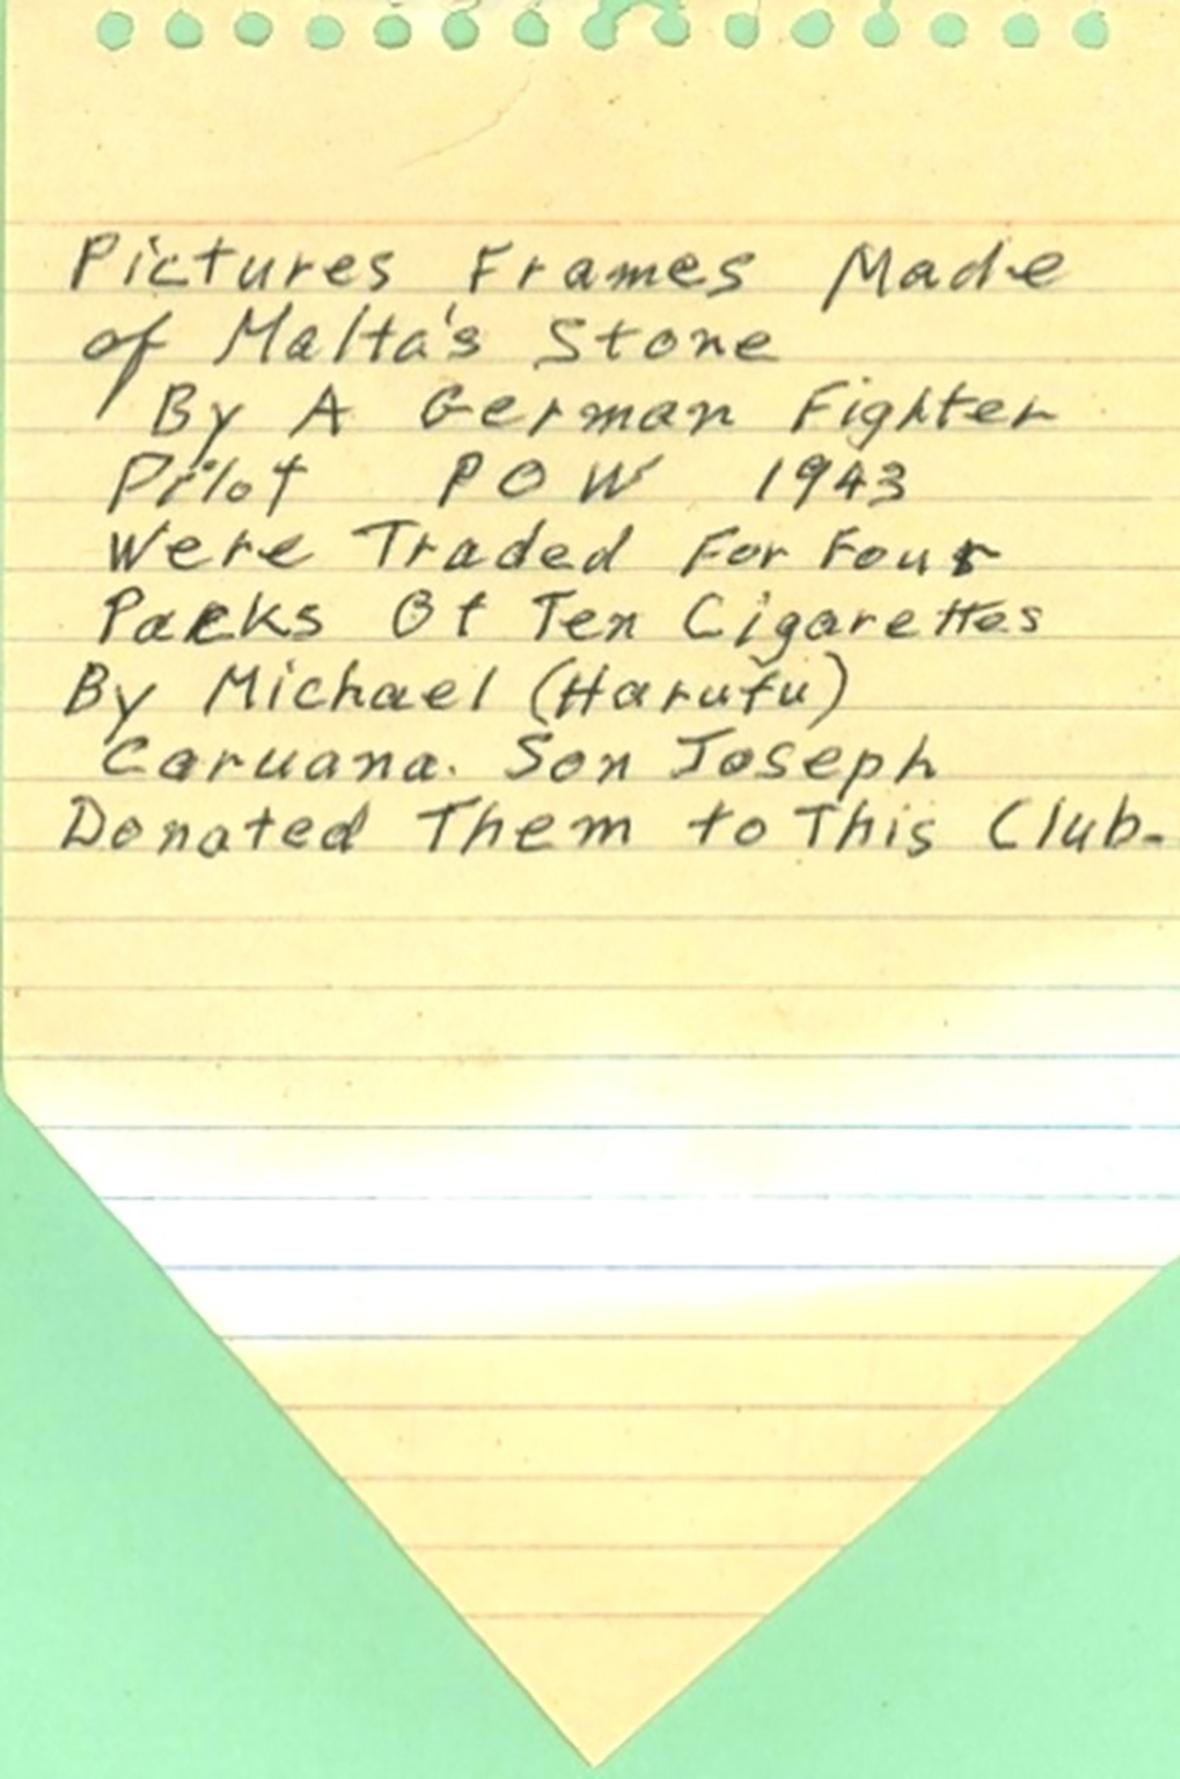 Pictures Frames Made
of Malta's Stone
By A German Fighter
Pilot POW 1943
Were Traded For Four
Packs Of Ten Cigarettes
By Michael (Harufu)
Caruana. Son Joseph
Donated Them to This Club-